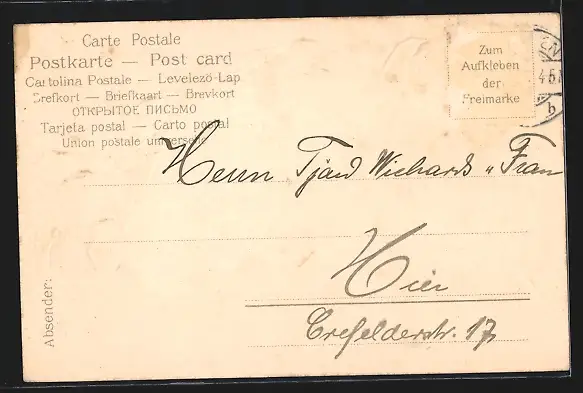 Carte Postale
Postkarte — Post card
Cartolina Postale — Levelező-Lap
Brefkort — Briefkaart — Brevkort
ОТКРЫТОЕ ПИСЬМО
Tarjeta postal — Carto postal
Union postale universelle
Zum
Aufkleben
der
Freimarke
b
Herrn Tjard Wichards u Frau
Hier
Crefelderstr. 17
Absender: